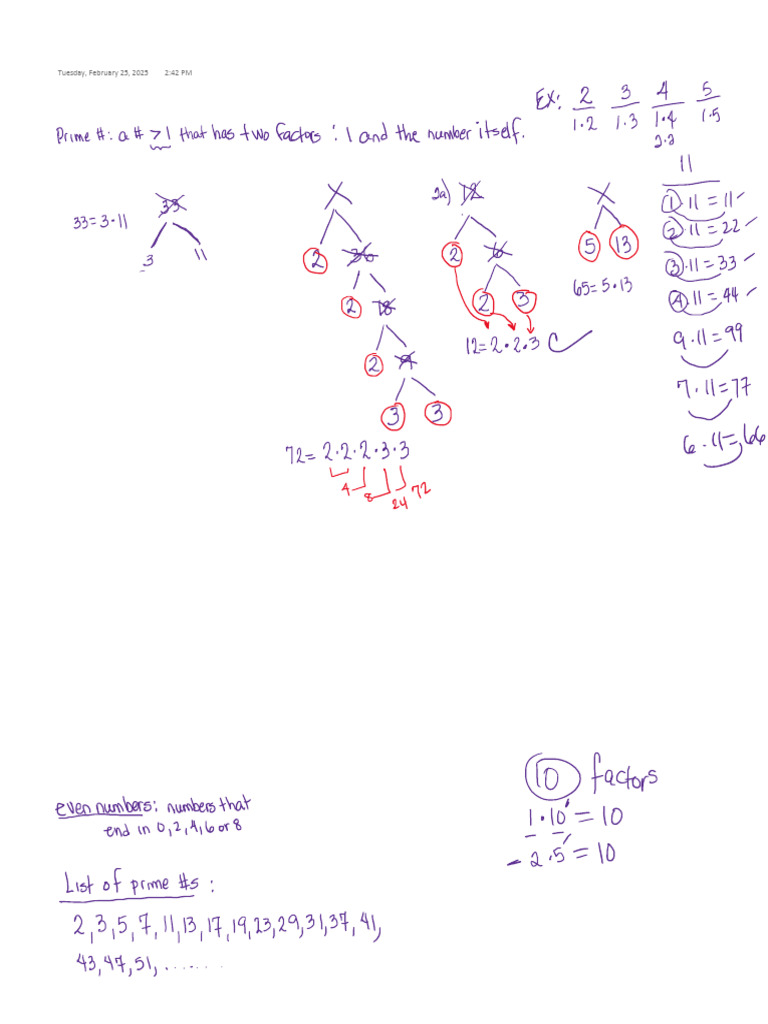 Tuesday, February 25, 2025 2:42 PM
Prime #: a # > 1 that has two factors : 1 and the number itself.
EX: 2 3 4 5
1·2 1·3 1·4 1·5
2·2
33 = 3·11
33
3 11
2 36
2 18
2 9
3 3
72 = 2·2·2·3·3
4 8 24 72
2a) 12
2 6
2 3
12 = 2·2·3
5 13
65 = 5·13
11
1·11 = 11
2·11 = 22
3·11 = 33
4·11 = 44
9·11 = 99
7·11 = 77
6·11 = 66
even numbers: numbers that
end in 0, 2, 4, 6 or 8
List of prime #s :
2, 3, 5, 7, 11, 13, 17, 19, 23, 29, 31, 37, 41,
43, 47, 51, .......
10 factors
1·10 = 10
2·5 = 10